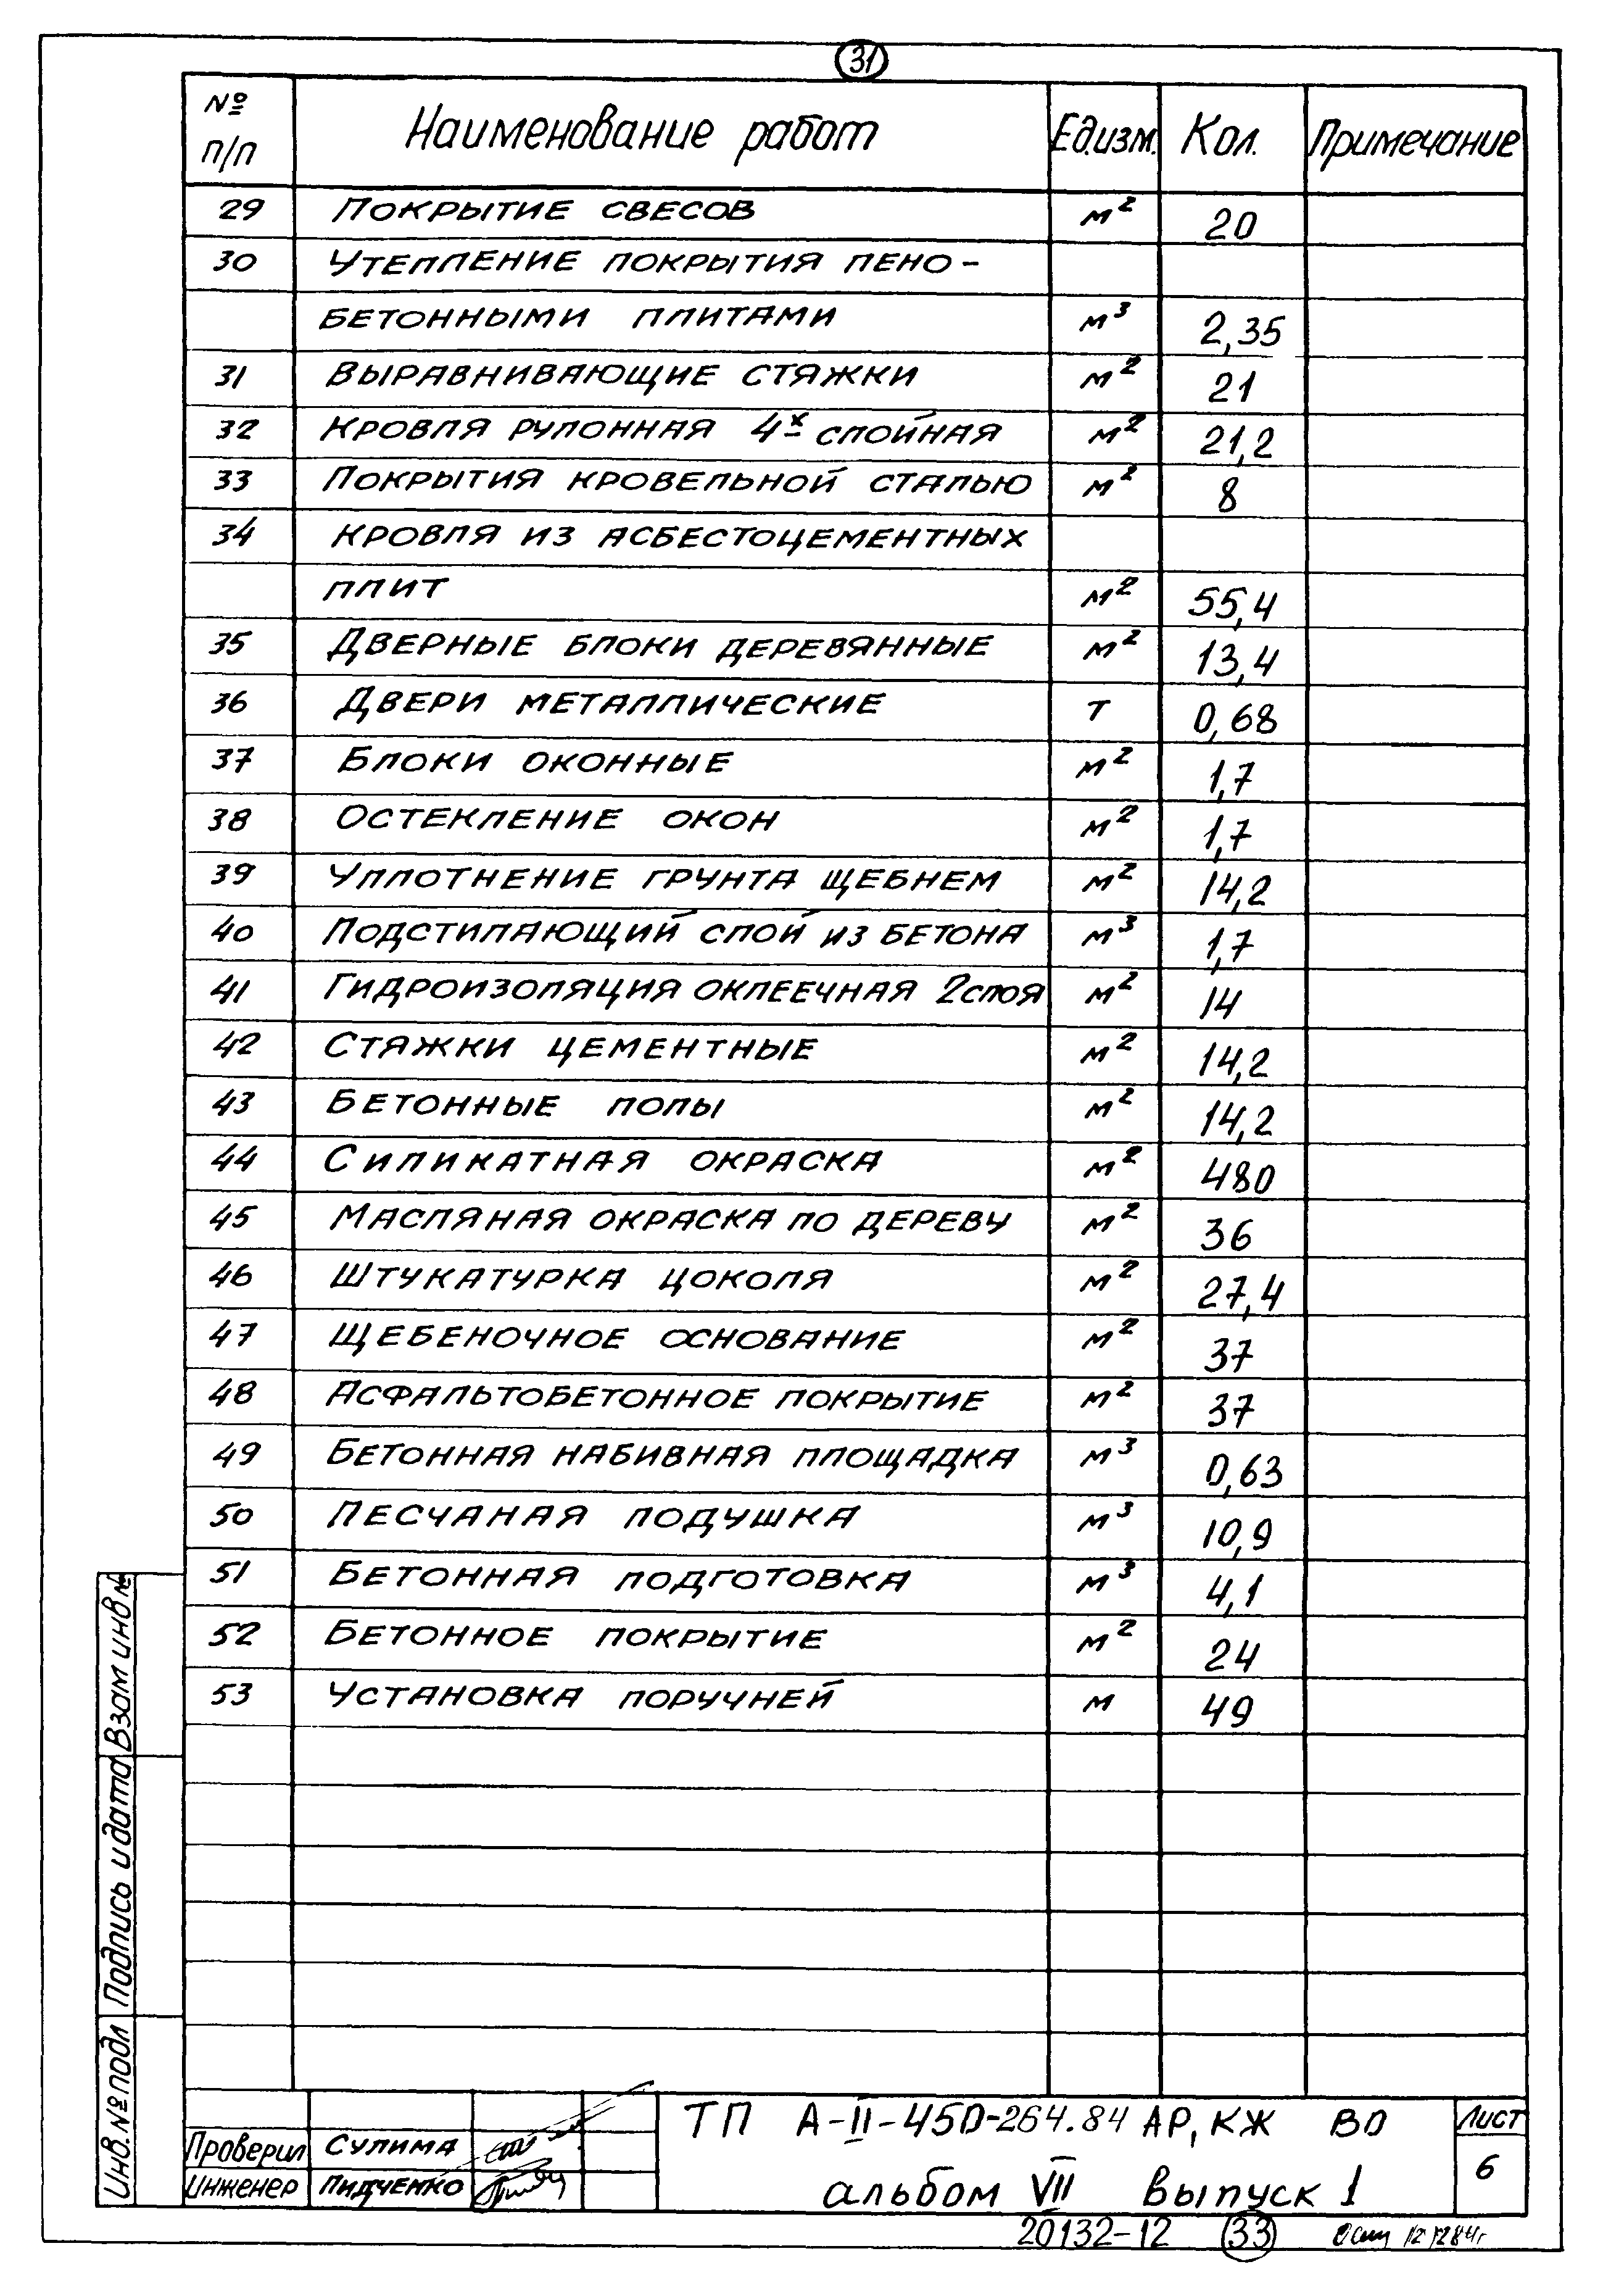 31
№ п/п Наименование работ Ед.изм. Кол. Примечание
29 Покрытие свесов м² 20
30 Утепление покрытия пено-
бетонными плитами м³ 2,35
31 Выравнивающие стяжки м² 21
32 Кровля рулонная 4х слойная м² 21,2
33 Покрытия кровельной сталью м² 8
34 Кровля из асбестоцементных
плит м² 55,4
35 Дверные блоки деревянные м² 13,4
36 Двери металлические т 0,68
37 Блоки оконные м² 1,7
38 Остекление окон м² 1,7
39 Уплотнение грунта щебнем м² 14,2
40 Подстилающий слой из бетона м³ 1,7
41 Гидроизоляция оклеечная 2слоя м² 14
42 Стяжки цементные м² 14,2
43 Бетонные полы м² 14,2
44 Силикатная окраска м² 480
45 Масляная окраска по дереву м² 36
46 Штукатурка цоколя м² 27,4
47 Щебеночное основание м² 37
48 Асфальтобетонное покрытие м² 37
49 Бетонная набивная площадка м³ 0,63
50 Песчаная подушка м³ 10,9
51 Бетонная подготовка м³ 4,1
52 Бетонное покрытие м² 24
53 Установка поручней м 49
Взам инв №
Подпись и дата
Инв. № подл
Проверил Сулима
Инженер Пидченко
ТП А-II-450-264.84 АР, КЖ ВО
альбом VII выпуск 1
Лист
6
20132-12 33